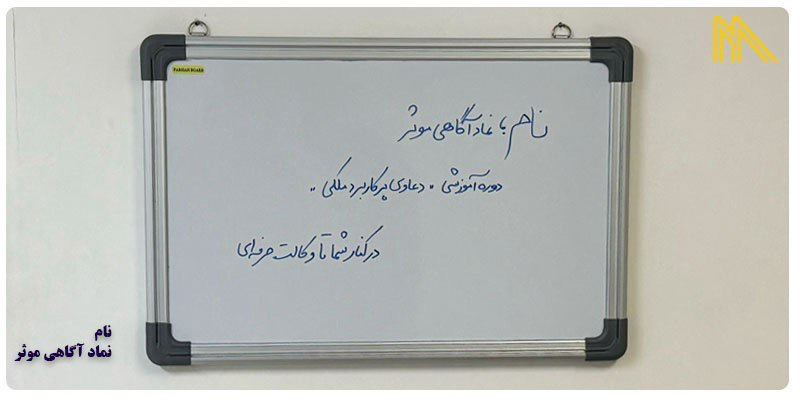 PARSIAN BOARD
نام با نماد آگاهی موثر
دوره آموزشی " دعاوی پرکاربرد ملکی "
در کنار شما تا وکالت حرفه‌ای
نام
نماد آگاهی موثر